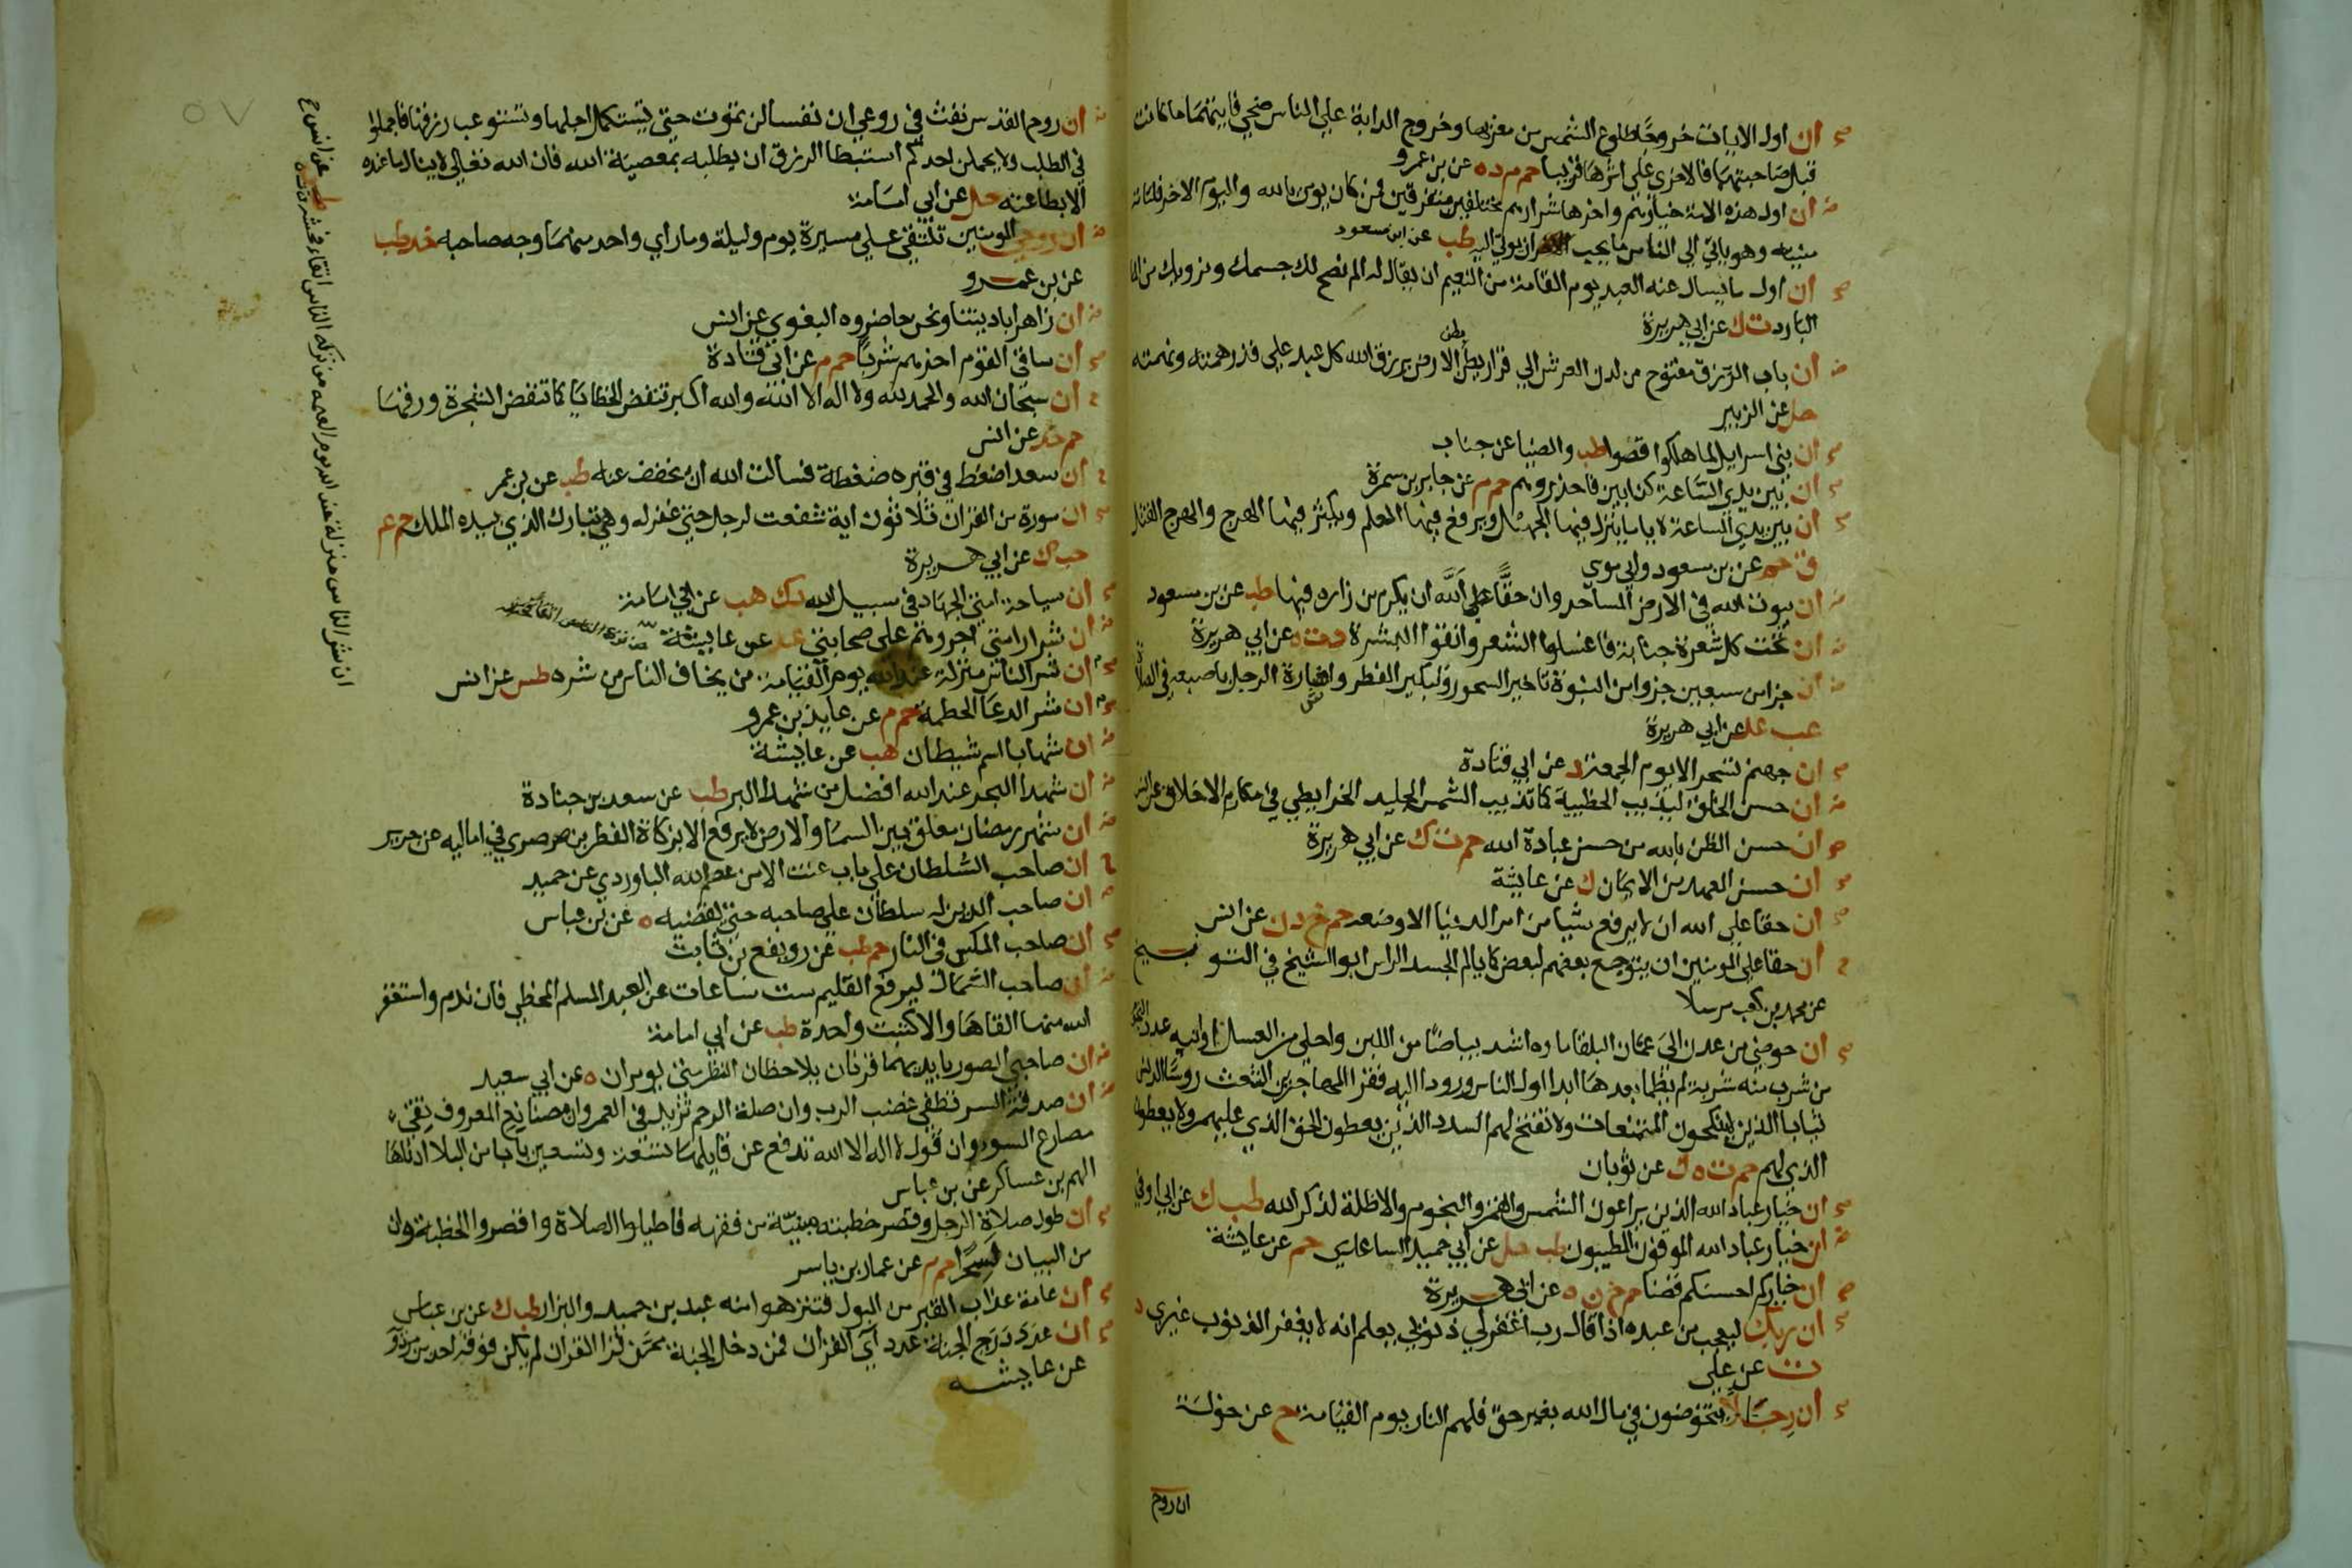 ان اول الايات خروجا طلوع الشمس من مغربها وخروج الدابة علي الناس ضحي فايتهما ما كانت
قبل صاحبتها فالاخري علي اثرها قريبا حم م د ه عن بن عمرو
ان اول هذه الامة خيارهم واخرها شرارهم مختلفين متفرقين فمن كان يومن بالله واليوم الاخر فلتاته
منيته وهو ياتي الي الناس ما يحب ان يوتي اليه طب عن ابن مسعود
ان اول ما يسال عنه العبد يوم القيامة من النعيم ان يقال له الم نصح لك جسمك ونرويك من الما
البارد ت ك عن ابي هريرة
ان باب الرزق مفتوح من لدن العرش الي قرار بطن الارض يرزق الله كل عبد علي قدر همته ونهمته
حل عن الزبير
ان بني اسرايل لما هلكوا قصوا طب والضيا عن خباب
ان بين يدي الساعة كذابين فاحذروهم حم م عن جابر بن سمرة
ان بين يدي الساعة لاياما ينزل فيها الجهل ويرفع فيها العلم ويكثر فيها الهرج والهرج القتل
ق حم عن بن مسعود وابي موسي
ان بيوت الله في الارض المساجد وان حقا علي الله ان يكرم من زاره فيها طب عن بن مسعود
ان تحت كل شعرة جنابة فاغسلوا الشعر وانقوا البشرة د ت ه عن ابي هريرة
ان جزا من سبعين جزوا من النبوة تاخير السحور وتبكير الفطر واشارة الرجل باصبعه في الصلاة
عب عد عن ابي هريرة
ان جهنم تسجر الا يوم الجمعة د عن ابي قتادة
ان حسن الخلق ليذيب الخطيية كما تذيب الشمس الجليد الخرايطي في مكارم الاخلاق عن انس
ان حسن الظن بالله من حسن عبادة الله حم ت ك عن ابي هريرة
ان حسن العهد من الايمان ك عن عايشة
ان حقا علي الله ان لا يرفع شيا من امر الدنيا الا وضعه حم خ د ن عن انس
ان حقا علي المومنين ان يتوجع بعضهم لبعض كما يالم الجسد الراس ابو الشيخ في التوبيخ
عن محمد بن كعب مرسلا
ان حوضي من عدن الي عمان البلقا ماوه اشد بياضا من اللبن واحلي من العسل اوانيه عدد النجوم
من شرب منه شربة لم يظما بعدها ابدا اول الناس ورودا اليه فقرا المهاجرين الشعث روسا الدنس
ثيابا الذين لا ينكحون المتنعمات ولا تفتح لهم السدد الذين يعطون الحق الذي عليهم ولا يعطون
الذي لهم حم ت ه ك عن ثوبان
ان خيار عباد الله الذين يراعون الشمس والقمر والنجوم والاظلة لذكر الله طب ك عن ابن ابي اوفي
ان خيار عباد الله الموفون المطيبون طب حل عن ابي حميد الساعدي حم عن عايشة
ان خياركم احسنكم قضا حم خ ن ه عن ابي هريرة
ان ربك ليعجب من عبده اذا قال رب اغفر لي ذنوبي يعلم انه لا يغفر الذنوب غيري د
ت عن علي
ان رجالا يتخوضون في مال الله بغير حق فلهم النار يوم القيامة خ عن خولة
ان روح
ان روح القدس نفث في روعي ان نفسا لن تموت حتي تستكمل اجلها وتستوعب رزقها فاجملوا
في الطلب ولا يحملن احدكم استبطا الرزق ان يطلبه بمعصية الله فان الله تعالي لا ينال ما عنده
الا بطاعته حل عن ابي امامة
ان روحي المومنين تلتقي علي مسيرة يوم وليلة وما راي واحد منهما وجه صاحبه خد طب
عن بن عمرو
ان زاهرا باديتنا ونحن حاضروه البغوي عن انس
ان ساقي القوم اخرهم شربا حم م عن ابي قتادة
ان سبحان الله والحمد لله ولا اله الا الله والله اكبر تنفض الخطايا كما تنفض الشجرة ورقها
حم خد عن انس
ان سعدا ضغط في قبره ضغطة فسالت الله ان يخفف عنه طب عن بن عمر
ان سورة من القران ثلاثون اية شفعت لرجل حتي غفر له وهي تبارك الذي بيده الملك حم عم
حب ك عن ابي هريرة
ان سياحة امتي الجهاد في سبيل الله د ك هب عن ابي امامة
ان شرار امتي اجروهم علي صحابتي عد عن عايشة
ان شر الناس منزلة عند الله يوم القيامة من يخاف الناس من شره طس عن انس
ان شر الرعا الحطمة حم م عن عايذ بن عمرو
ان شهابا اسم شيطان هب عن عايشة
ان شهدا البحر عند الله افضل من شهدا البر طب عن سعد بن جنادة
ان شهر رمضان معلق بين السما والارض لا يرفع الا بزكاة الفطر بن صصري في اماليه عن جرير
ان صاحب السلطان علي باب عنت الا من عصم الله الباوردي عن حميد
ان صاحب الدين له سلطان علي صاحبه حتي يقضيه ه عن بن عباس
ان صاحب المكس في النار حم طب عن رويفع بن ثابت
ان صاحب الشمال ليرفع القلم ست ساعات عن العبد المسلم المخطي فان ندم واستغفر
الله منها القاها والا كتبت واحدة طب عن ابي امامة
ان صاحبي الصور بايديهما قرنان يلاحظان النظر متي يومران ه عن ابي سعيد
ان صدقة السر تطفي غضب الرب وان صلة الرحم تزيد في العمر وان صنايع المعروف تقي
مصارع السو وان قول لا اله الا الله تدفع عن قايلها تسعة وتسعين بابا من البلا ادناها
الهم بن عساكر عن بن عباس
ان طول صلاة الرجل وقصر خطبته مينة من فقهه فاطيلوا الصلاة واقصروا الخطبة وان
من البيان لسحرا حم م عن عمار بن ياسر
ان عامة عذاب القبر من البول فتنزهوا منه عبد بن حميد والبزار طب ك عن بن عباس
ان عدد درج الجنة عدد اي القران فمن دخل الجنة ممن قرا القران لم يكن فوقه احد بن مردويه
عن عايشه
ان شر الناس منزلة عند الله يوم القيمه من تركه الناس اتقاء فحشه
٥٧